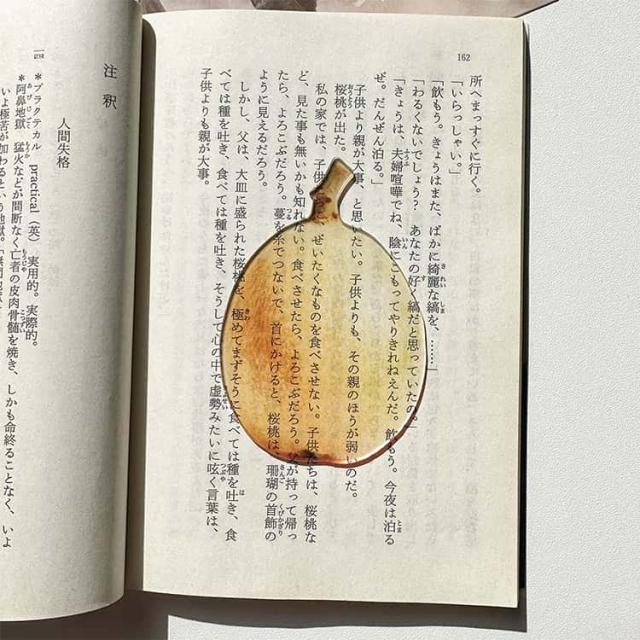 162
所へまっすぐに行く。
「いらっしゃい。」
「飲もう。きょうはまた、ばかに綺麗な縞を、……」
「わるくないでしょう? あなたの好く縞だと思っていたの。」
「きょうは、夫婦喧嘩でね、陰にこもってやりきれねえんだ。飲もう。今夜は泊る
ぜ。だんぜん泊る。」
子供より親が大事、と思いたい。子供よりも、その親のほうが弱いのだ。
桜桃が出た。
私の家では、子供たちに、ぜいたくなものを食べさせない。子供たちは、桜桃な
ど、見た事も無いかも知れない。食べさせたら、よろこぶだろう。父が持って帰っ
たら、よろこぶだろう。蔓を糸でつないで、首にかけると、桜桃は、珊瑚の首飾の
ように見えるだろう。
しかし、父は、大皿に盛られた桜桃を、極めてまずそうに食べては種を吐き、食
べては種を吐き、食べては種を吐き、そうして心の中で虚勢みたいに呟く言葉は、
子供よりも親が大事。
注釈
人間失格
*プラクテカル practical(英) 実用的。実際的。
*阿鼻地獄 猛火などが間断なく亡者の皮肉骨髄を焼き、しかも命終ることなく、いよ
いよ極苦が加わるという地獄。